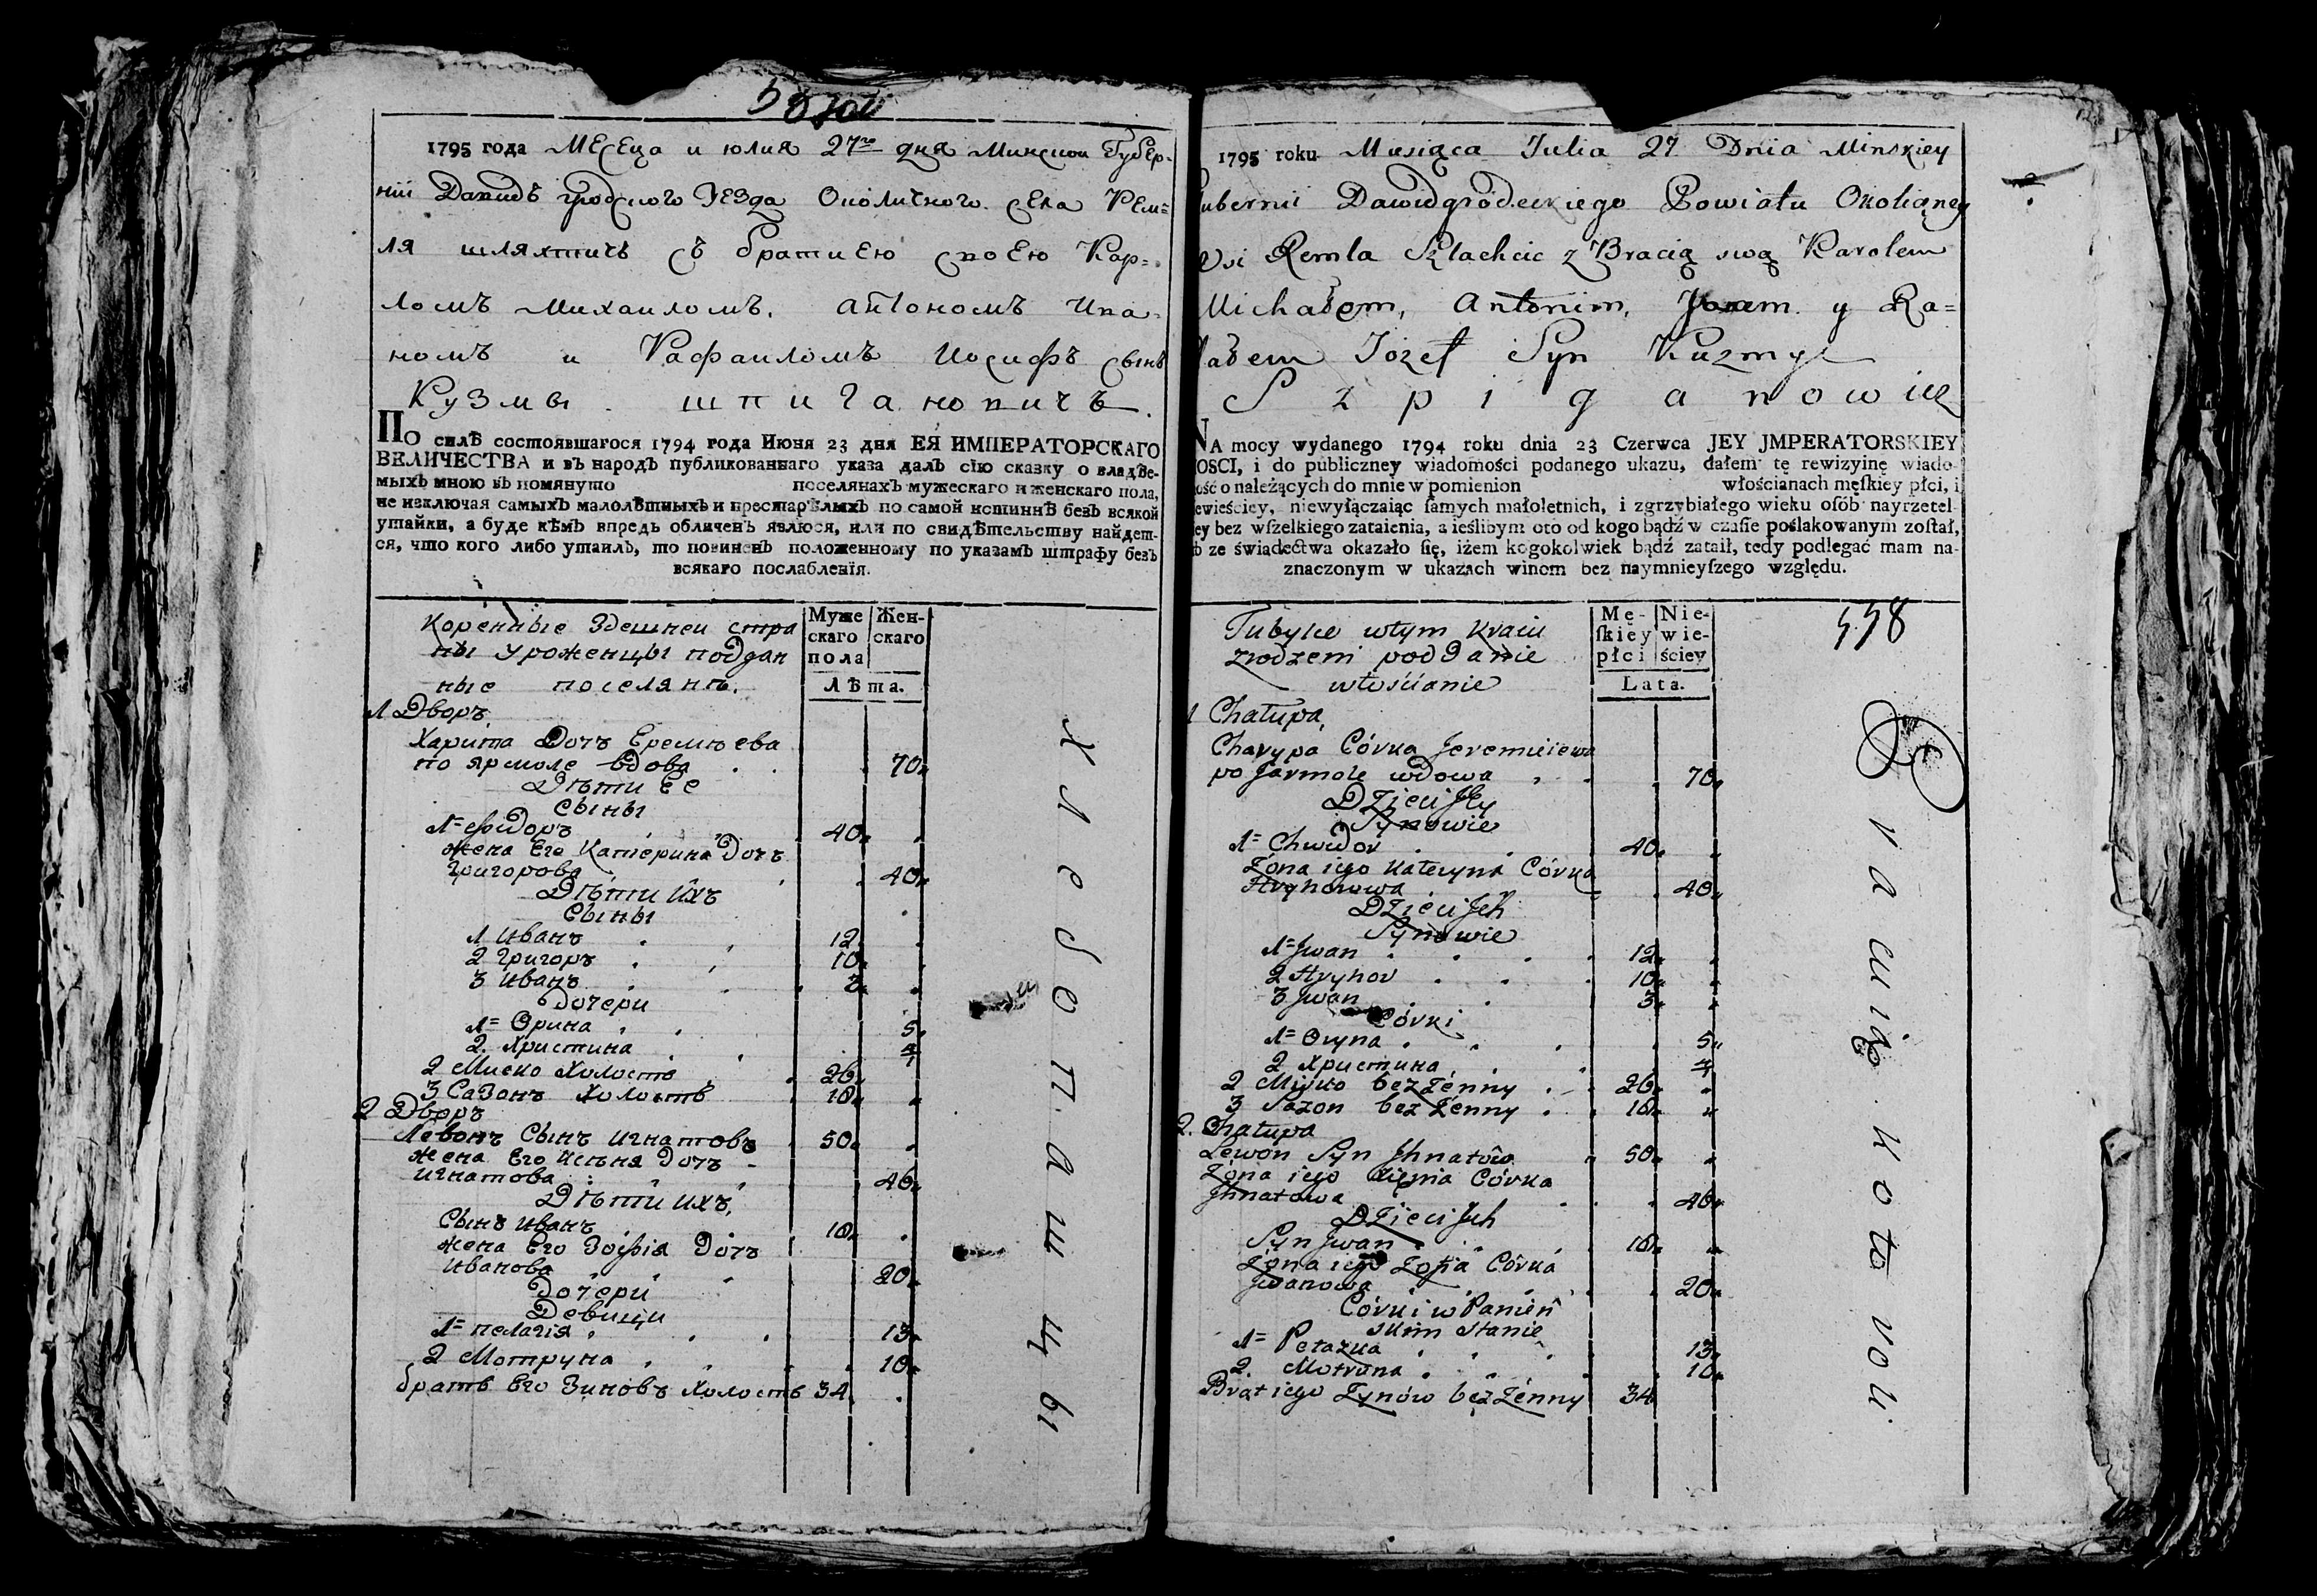 1795 года Месеца июлия 27го дня Минскои Губер-
нии Давидъ городского уезда Околичного села Рем=
ля шляхтичъ съ братиею своею Кар=
ломъ Михаиломъ, антономъ Ива-
номъ и Рафаиломъ Иосифъ сынъ
Кузмы шпигановичъ.
По силѣ состоявшагося 1794 года Июня 23 дня ЕЯ ИМПЕРАТОРСКАГО
ВЕЛИЧЕСТВА и въ народъ публикованнаго указа далъ сїю сказку о владѣе-
мыхъ мною въ помянуто поселянахъ мужескаго и женскаго пола,
не изключая самыхъ малолѣтныхъ и престарѣлыхъ по самой истиннѣ безъ всякой
утайки, а буде кѣмъ впредь обличенъ явлюся, или по свидѣтельству найдет-
ся, что кого либо утаилъ, то повиненъ положенному по указамъ штрафу безъ
всякаго послабленїя.
Коренные Здешнеи стра
ны уроженцы поддан
ные поселянѣ.
Муже Жен-
скаго скаго
пола
Лѣта.
1 Дворъ
Харита Дочь Еремѣева
по ярмоле вдова 70
Дѣти ее
Сыны
1= Фидоръ 40
жена Его Катерина Дочь
Григорова 40
Дѣти Ихъ
Сыны
1 Иванъ 12
2 Григоръ 10
3 Иванъ 3
Дочери
1= Орина 5
2. Христина
2 Миско Холостъ 26
3 Сазонъ Холостъ 18
2 Дворъ
Левонъ Сынъ Игнатовъ 50
жена Его Дочь
Игнатова 40
Дѣти ихъ
Сынъ Иванъ 18
жена Его Зофія Дочь
Иванова 20
Дочери
Девици
1= пелагія 13
2 Мотруна 10
братъ Его Зиновъ Холостъ 34
Хлебопашцы
1795 roku Miesiąca Julia 27 Dnia Minskiey
Gubernii Dawidgrodeckiego Powiatu Okoliczney
Wsi Remla Szlachcic z Bracią swą Karolem
Michałem, Antonim, Janem y Ra=
fałem Jozef Syn Kuzmy
Szpiganowicz
NA mocy wydanego 1794 roku dnia 23 Czerwca JEY JMPERATORSKIEY
MOSCI, i do publiczney wiadomości podanego ukazu, dałem tę rewizyinę wiado-
mość o należących do mnie w pomienion włościanach męſkiey płci, i
niewieściey, niewyłączaiąc ſamych małoletnich, i zgrzybiałego wieku oſób nayrzetel-
ney bez wſzelkiego zataienia, a ieślibym oto od kogo bądź w czaſie poślakowanym został,
lub ze świadectwa okazało ſię, iżem kogokolwiek bądź zataił, tedy podlegać mam na-
znaczonym w ukazach winom bez naymnieyſzego względu.
Tubylce wtym kraiu
zrodzeni poddanie
włościanie
Mę- Nie-
ſkiey wie-
płci ściey
Lata.
558
1 Chałupa
Charypa Córka Jeremieiewa
po Jarmole wdowa 70
Dzieci Jey
Synowie
1= Chwidor 40
Żona iego Kateryna Córka
Hryhorowa 40
Dzieci Jch
Synowie
1= Jwan 12
2 Hryhor 10
3 Jwan 3
Córki
1= Oryna 5
2 Христина
2 Misko bezżenny 26
3 Sazon bezżenny 18
2. Chałupa
Lewon Syn Jhnatów 50
Żona iego Córka
Jhnatowa 40
Dzieci Jch
Syn Jwan 18
Żona iego Zofia Córka
Jwanowa 20
Córki w Panień
skim stanie
1= Pełazka 13
2. Motruna 10
Brat iego Zynów bezżenny 34
Pracuią koło roli